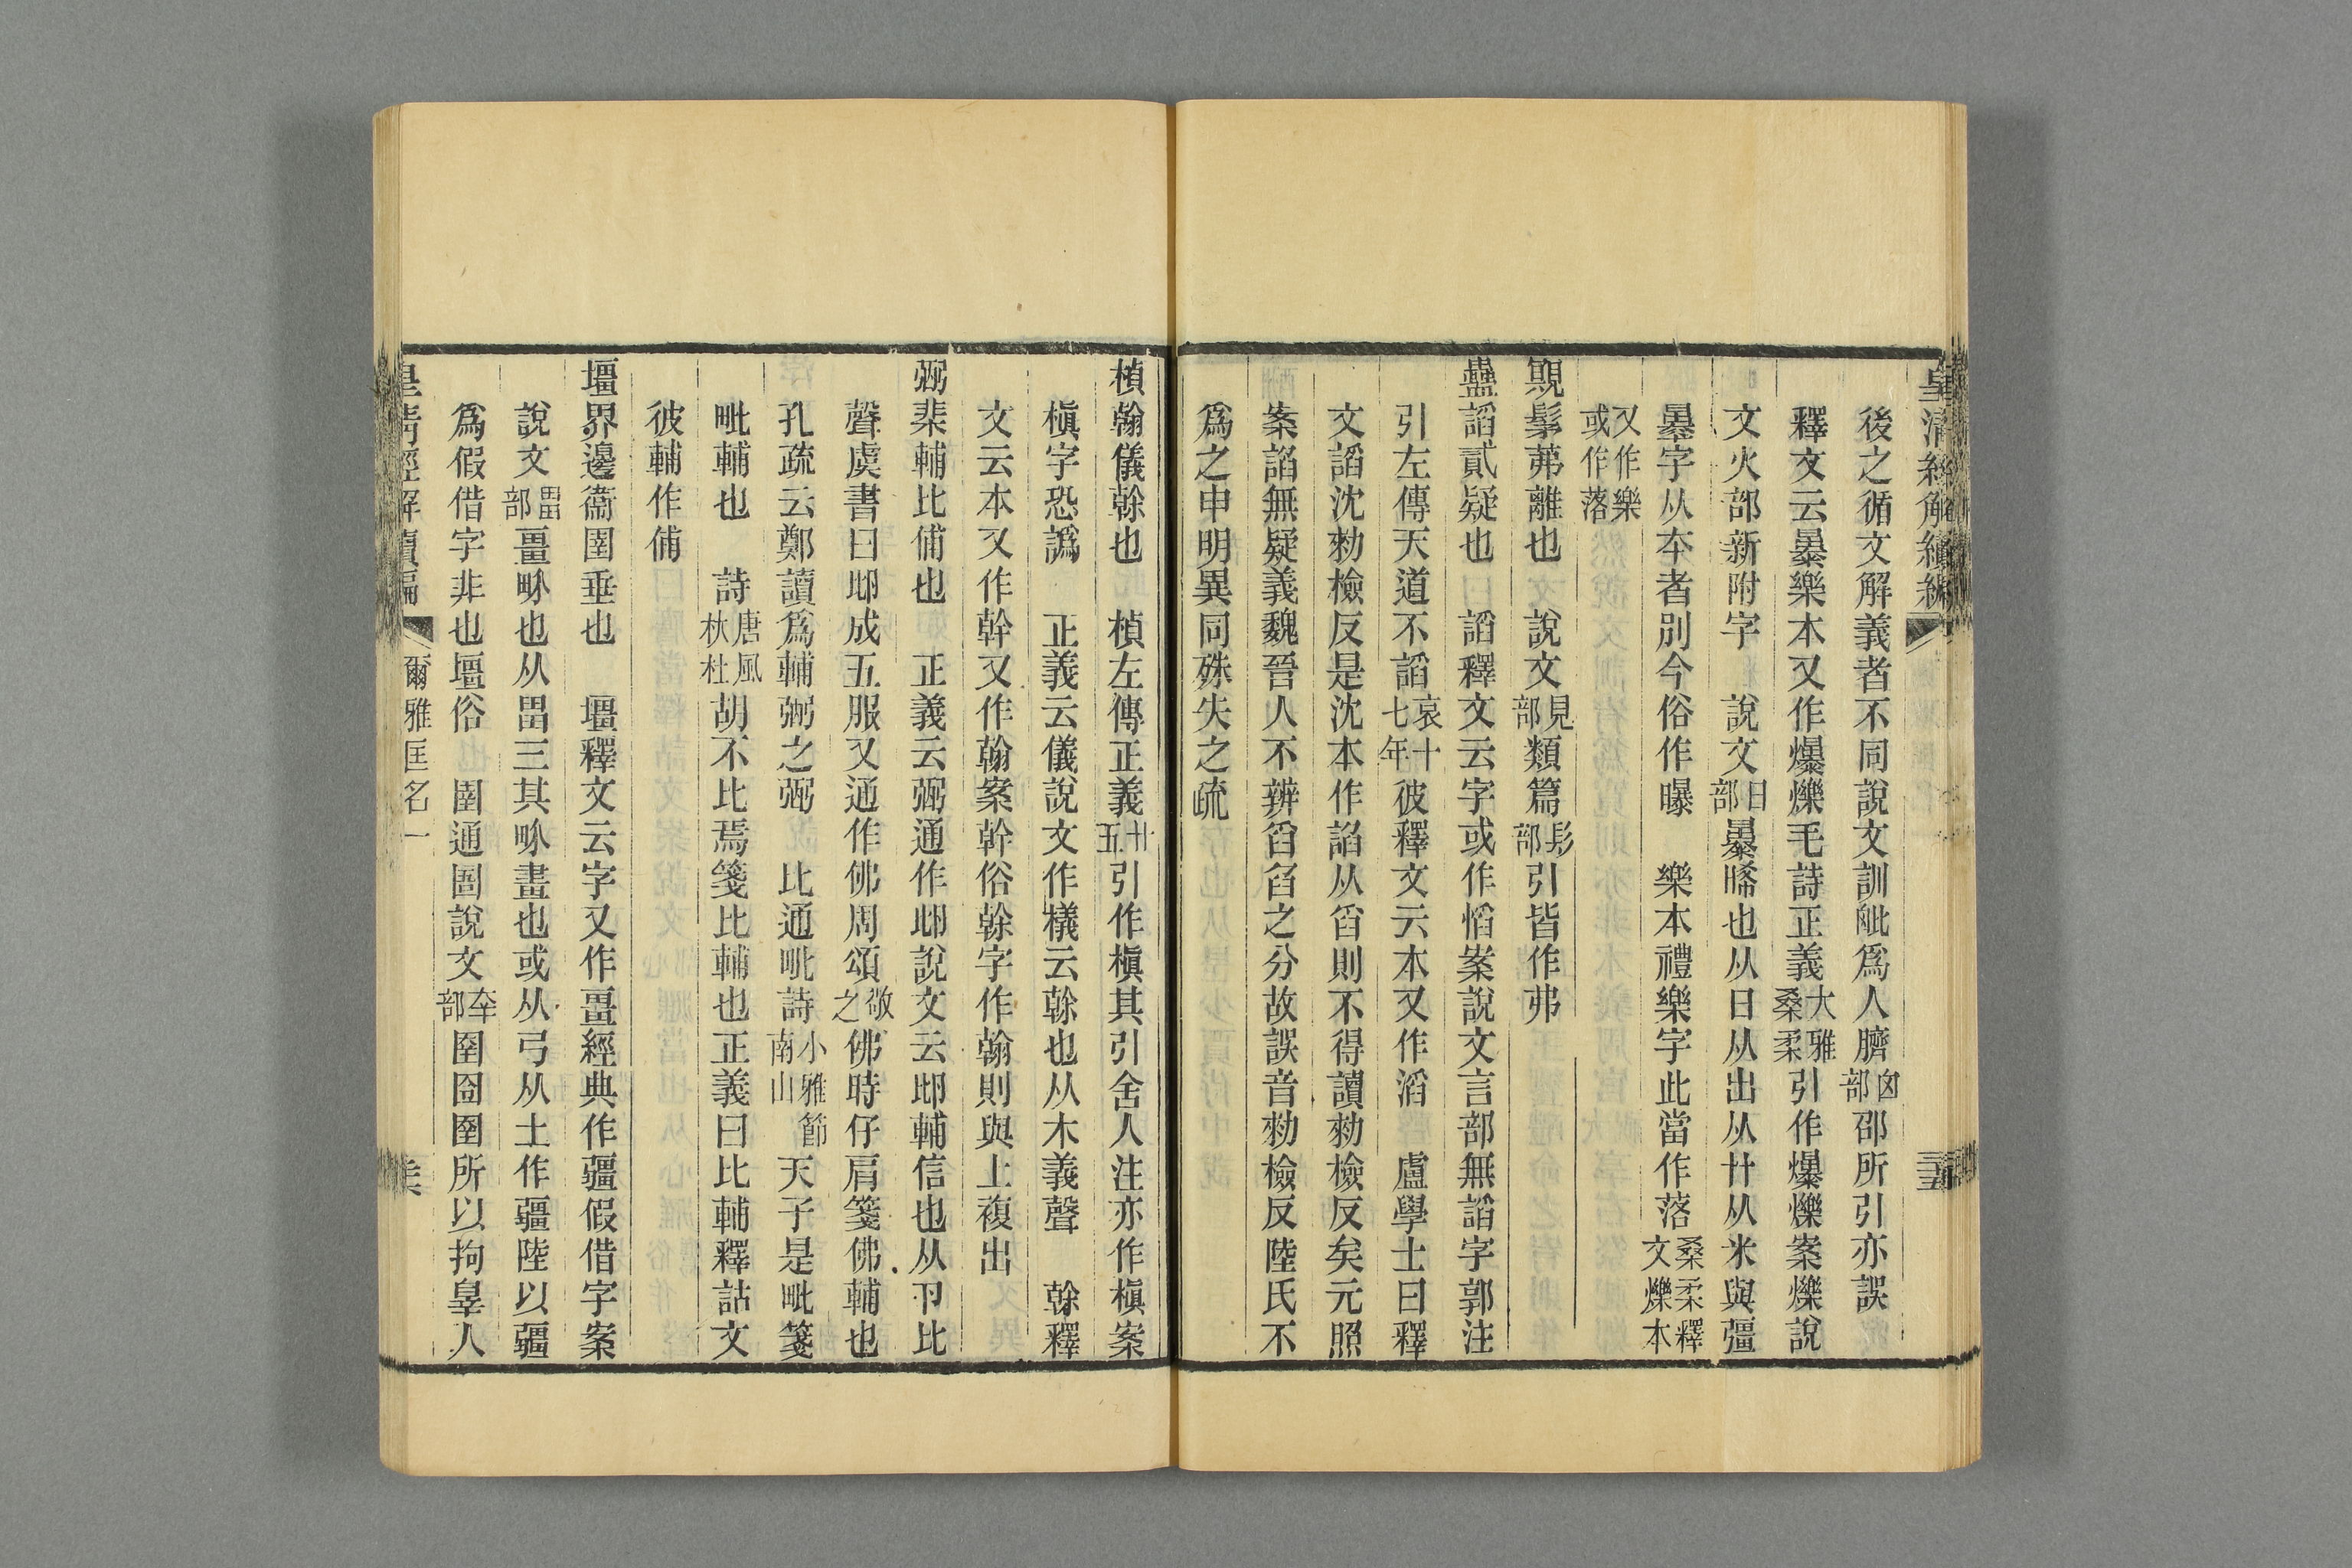 皇清經解續編
後之循文解義者不同說文訓毗爲人臍囟部邵所引亦誤
釋文云暴樂本又作爆爍毛詩正義大雅桑柔引作爆爍案爍說
文火部新附字 說文日部暴晞也从日从出从廾从米與彊
暴字从夲者別今俗作曝 樂本禮樂字此當作落桑柔釋文爍本
又作樂或作落
覭髳茀離也 說文見部類篇髟部引皆作弗
蠱謟貳疑也 謟釋文云字或作慆案說文言部無謟字郭注
引左傳天道不謟哀十七年彼釋文云本又作滔 盧學士曰釋
文謟沈勑檢反是沈本作諂从臽則不得讀勑檢反矣元照
案諂無疑義魏晉人不辨舀臽之分故誤音勑檢反陸氏不
爲之申明異同殊失之疏
楨翰儀榦也 楨左傳正義卅五引作楨其引舍人注亦作楨案
楨字恐譌 正義云儀說文作檥云榦也从木義聲 榦釋
文云本又作幹又作翰案幹俗榦字作翰則與上複出
弼棐輔比俌也 正義云弼通作㔽說文云㔽輔信也从卪比
聲虞書曰㔽成五服又通作佛周頌敬之佛時仔肩箋佛輔也
孔疏云鄭讀爲輔弼之弼 比通毗詩小雅節南山天子是毗箋
毗輔也 詩唐風杕杜胡不比焉箋比輔也正義曰比輔釋詁文
彼輔作俌
壃界邊衞圉垂也 壃釋文云字又作畺經典作疆假借字案
說文畕部畺畍也从畕三其畍畫也或从弓从土作疆陸以疆
爲假借字非也壃俗 圉通圄說文㚔部圉囹圉所以拘辠人
皇清經解續編 爾雅匡名一